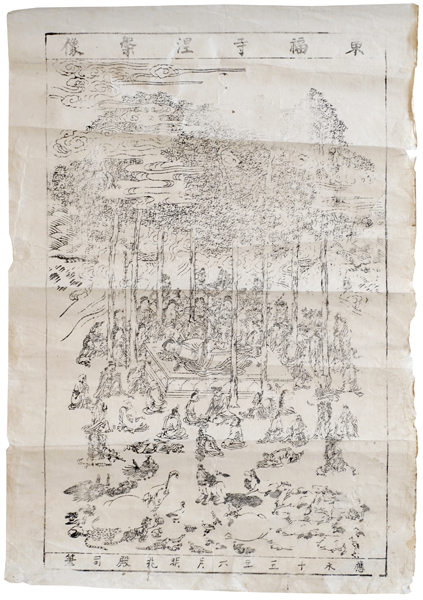 東福寺涅槃像
應永十五年六月明兆殿司筆